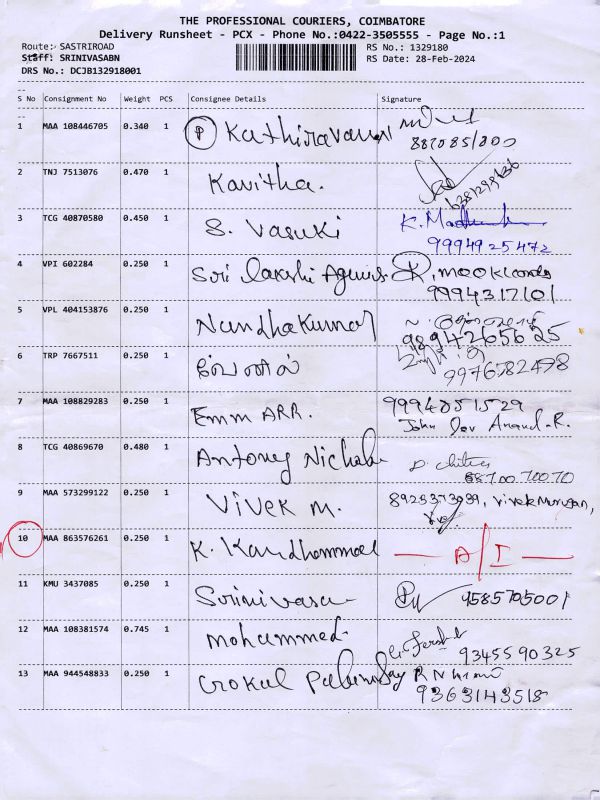 THE PROFESSIONAL COURIERS, COIMBATORE
Delivery Runsheet - PCX - Phone No.:0422-3505555 - Page No.:1
Route:- SASTRIROAD
RS No.: 1329180
Staff: SRINIVASABN
RS Date: 28-Feb-2024
DRS No.: DCJB132918001
S No Consignment No Weight PCS Consignee Details Signature
1 MAA 108446705 0.340 1 P Kathiravan
887085/800
2 TNJ 7513076 0.470 1 Kavitha.
3 TCG 40870580 0.450 1 S. Vasuki K.
9994925472
4 VPI 602284 0.250 1 Sri
9994317101
5 VPL 404153876 0.250 1 Nandhakumar
9894265625
6 TRP 7667511 0.250 1
9976782498
7 MAA 108829283 0.250 1 Emm ARR. 9994051529
John Dev Anand.R.
8 TCG 40869670 0.480 1 Antony D. Chitra
8870070070
9 MAA 573299122 0.250 1 Vivek M. Vivek Murugan,
10 MAA 863576261 0.250 1 K. Kandhammal A/I
11 KMU 3437085 0.250 1 Srinivasa 9585705001
12 MAA 108381574 0.745 1 Mohammed.
9345590325
13 MAA 944548833 0.250 1 Gokul
9363143518